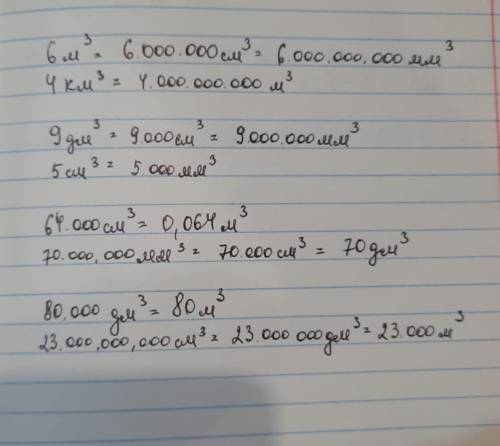 6м³ = 6.000.000см³ = 6.000.000.000мм³
4км³ = 4.000.000.000м³
9дм³ = 9.000см³ = 9.000.000мм³
5см³ = 5.000мм³
64.000см³ = 0,064м³
70.000,000мм³ = 70.000см³ = 70дм³
80.000 дм³ = 80м³
23.000,000,000см³ = 23.000 000дм³ = 23.000м³